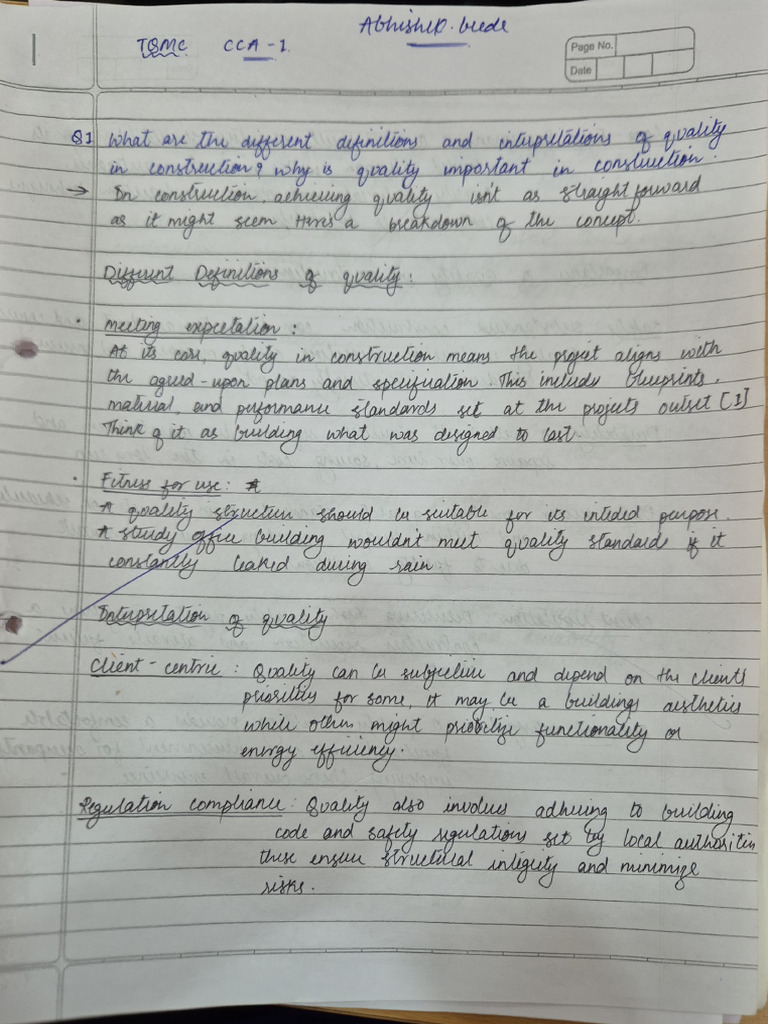 Abhishek. bede
TQMC CCA-1
Page No.
Date
Q1 What are the different definitions and interpretations of quality
in construction? Why is quality important in construction.
→ In construction, achieving quality isn't as straight forward
as it might seem. Here's a breakdown of the concept.
Different Definitions of quality:
• Meeting expectation:
At its core, quality in construction means the project aligns with
the agreed-upon plans and specification. This include blueprints,
material, and performance standards set at the projects outset [1]
Think of it as building what was designed to last.
• Fitness for use:
A quality structure should be suitable for its intided purpose.
A study office building wouldn't meet quality standards if it
constantly leaked during rain
Interpretation of quality
Client-centric: Quality can be subjective and depend on the clients
priorities for some, it may be a buildings aesthetics
while other might prioritize functionality or
energy efficiency.
Regulation compliance: Quality also involves adhering to building
code and safety regulations set by local authorities
these ensure structural integrity and minimize
risks.